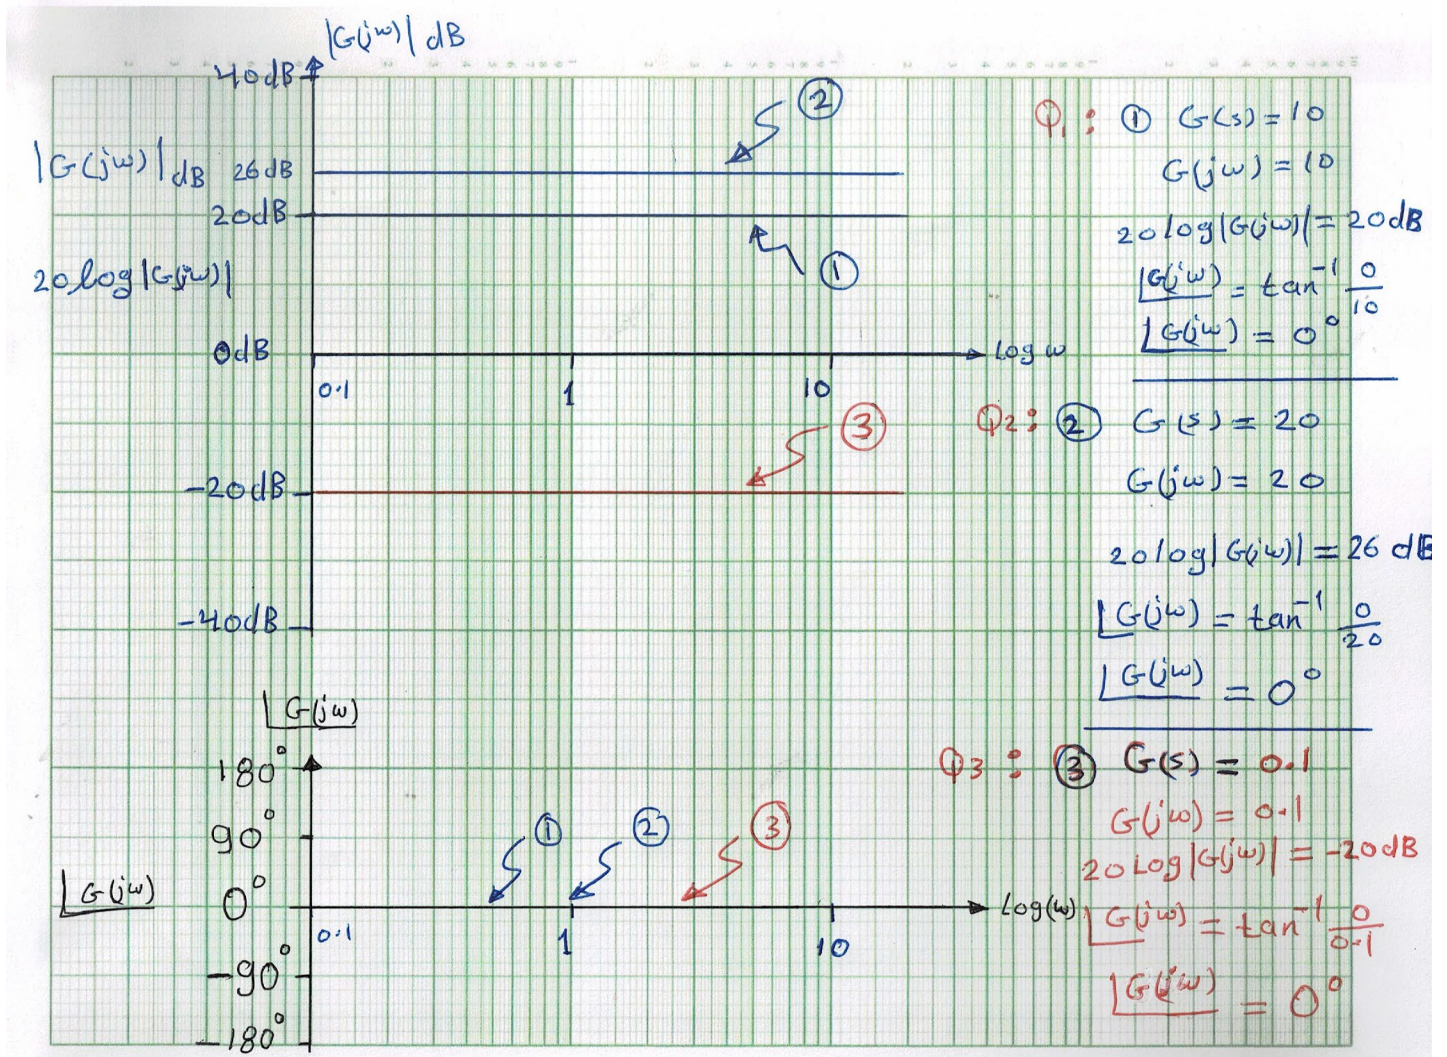 |G(jω)| dB
40dB
②
|G(jω)|dB 26dB
20dB
①
20log|G(jω)|
0dB
log ω
0.1 1 10
③
-20dB
-40dB
G(jω)
180°
① ② ③
90°
G(jω) 0°
Log(ω)
0.1 1 10
-90°
-180°
Q1: ① G(s) = 10
G(jω) = 10
20log|G(jω)| = 20dB
∠G(jω) = tan⁻¹ 0/10
∠G(jω) = 0°
Q2: ② G(s) = 20
G(jω) = 20
20log|G(jω)| = 26 dB
∠G(jω) = tan⁻¹ 0/20
∠G(jω) = 0°
Q3: ③ G(s) = 0.1
G(jω) = 0.1
20Log|G(jω)| = -20dB
∠G(jω) = tan⁻¹ 0/0.1
∠G(jω) = 0°